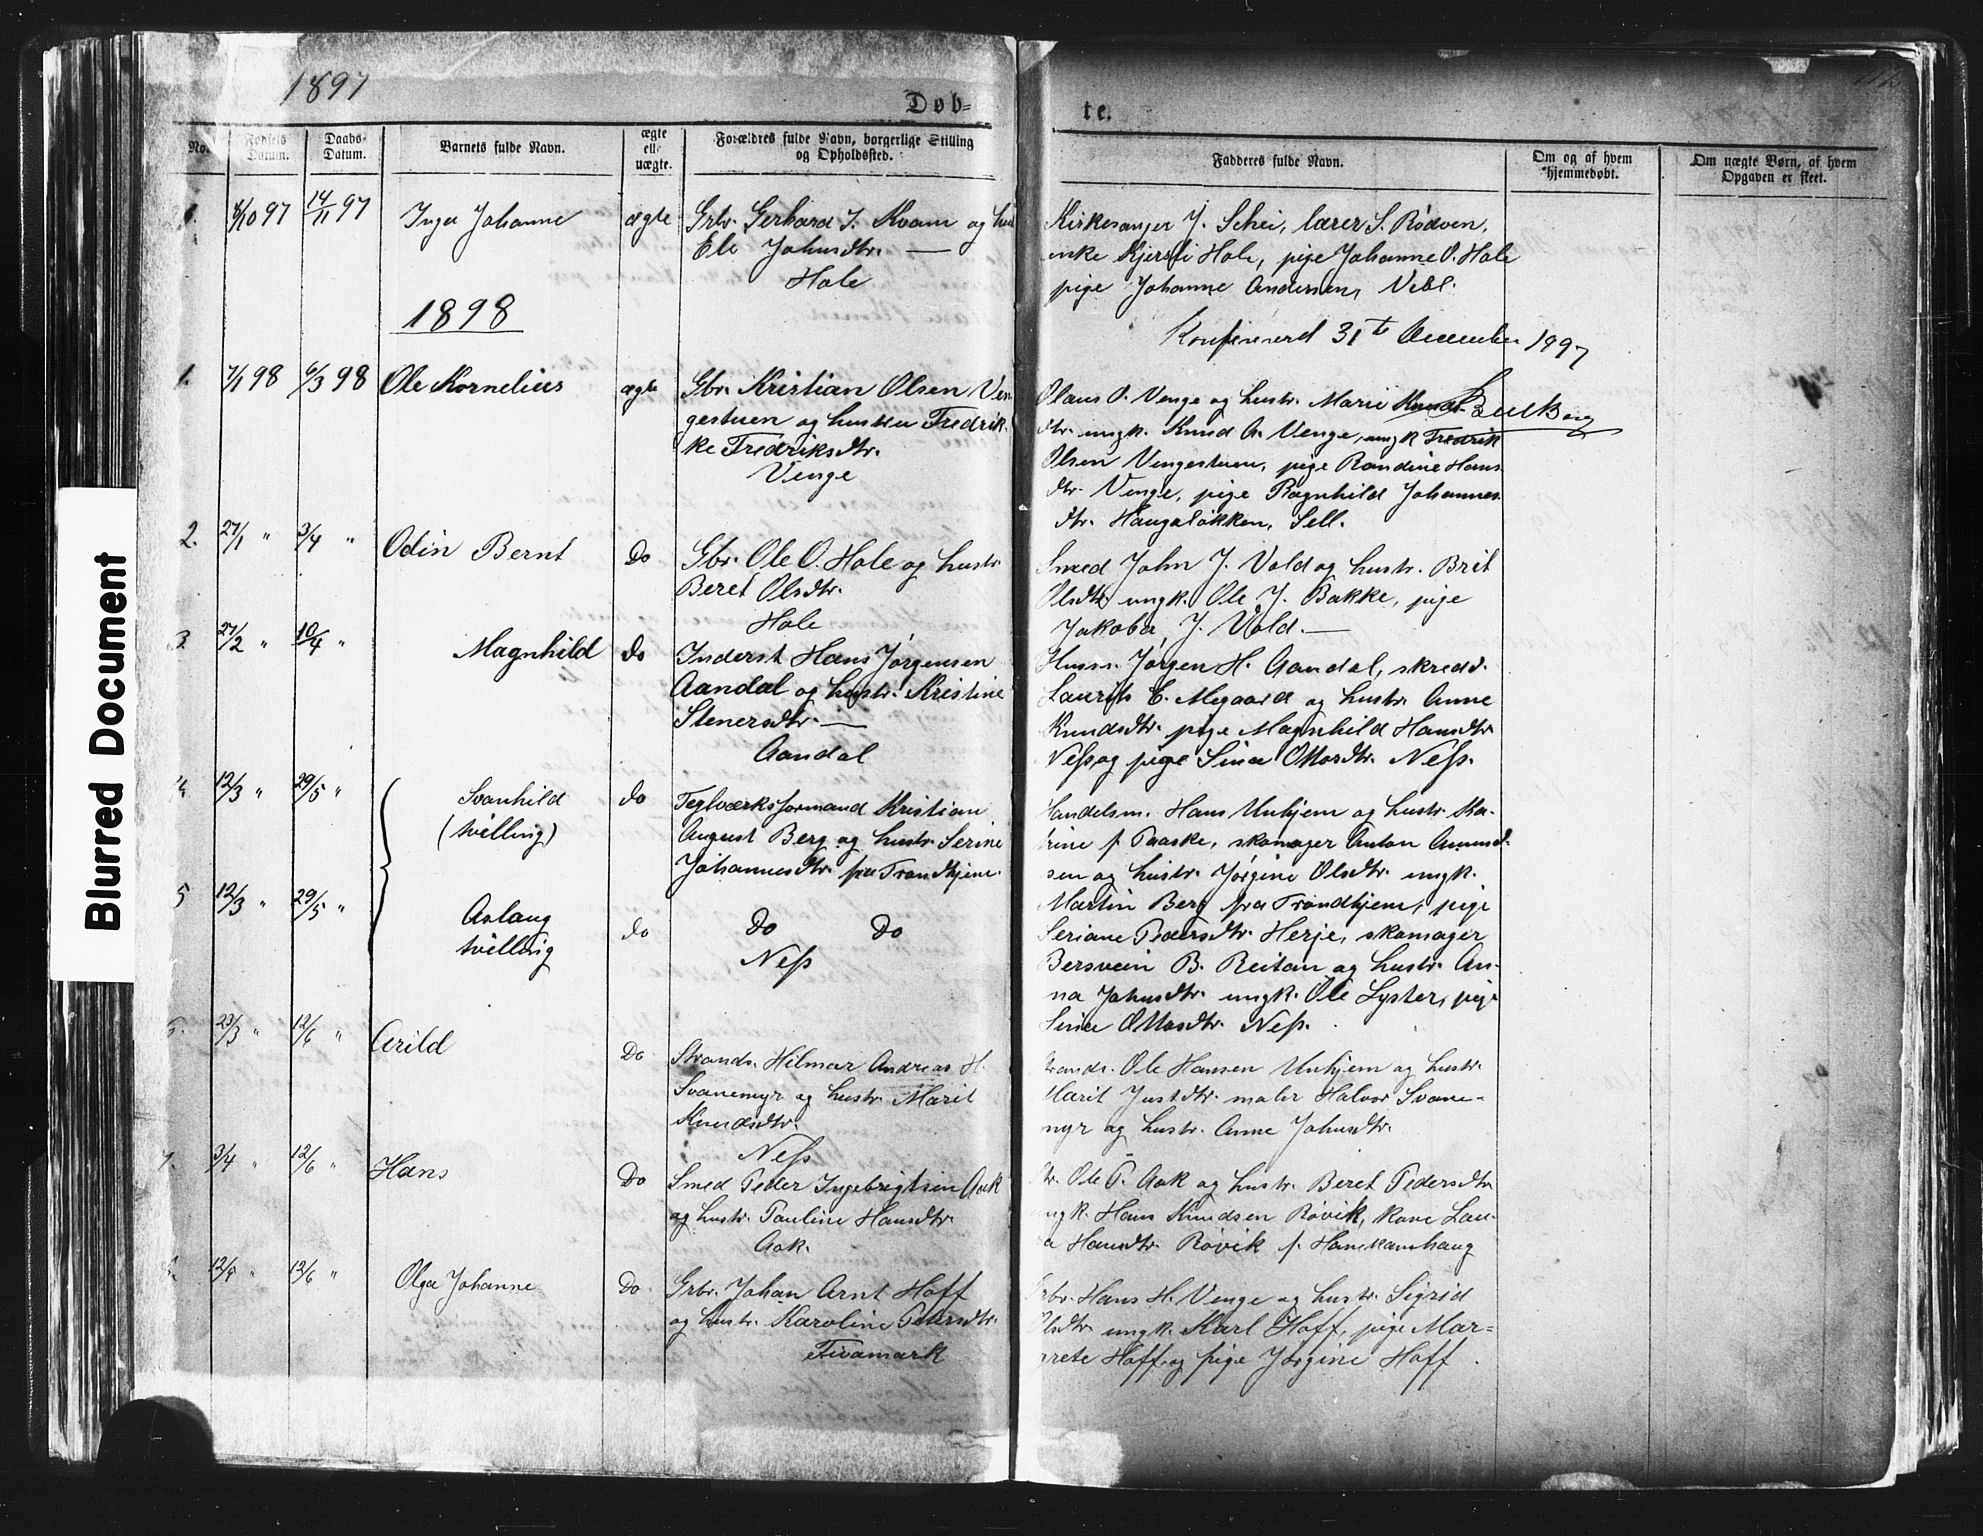 1897
Døb-
te.
No.
Fødsels Datum.
Daabs-Datum.
Barnets fulde Navn.
ægte ell. uægte.
Forældres fulde Navn, borgerlige Stilling og Opholdssted.
Fadderes fulde Navn.
Om og af hvem hjemmedøbt.
Om uægte Børn, af hvem Opgaven er skeet.
/10 97 14/11 97 Inga Johanne ægte Grbr. Gerhard J. Kvam og hu
Ele Johnsdtr. —
Hole
Kirkesanger J. Schei, lærer S. Rødven,
enke Kjersti Hole, pige Johanne O. Hole
pige Johanne Andersen, Vebl.
Konfirmered 31te December 1997
1898
1. 7/1 98 6/3 98 Ole Kornelius ægte Gbr. Kristian Olsen Ven
gestuen og hustru Fredrik-
ke Fredriksdtr.
Venge
Olaus O. Venge og hustr. Marie Knud-
dtr. ungk. Knud A. Venge, ungk Fredrik
Olsen Vengestuen, pige Randine Hans
dtr. Venge, pige Ragnhild Johannes
dtr. Haugaløkken, Sell.
2. 27/1 " 3/4 " Odin Bernt Do Gbr. Ole O. Hole og hustr.
Beret Olsdtr.
Hole
Smed John J. Vold og hustr. Brit
Olsdtr. ungk. Ole J. Bakke, pige
Jakoba J. Vold. —
3 27/2 " 10/4 " Magnhild do Inderst Hans Jørgensen
Aandal og hustr. Kristine
Stenersdtr. —
Aandal
Husm. Jørgen H. Aandal, skredd.
Laurits E. Megaard og hustr. Anne
Knudsdtr. pige Magnhild Hansdtr
Ness og pige Sina Ottosdtr. Ness.
4 12/3 " 29/5 " Svanhild do Teglværksformand Kristian
(tvilling) August Berg og hustr. Serine
Johannesdtr. fra Trondhjem.
5 12/3 " 29/5 " Aslaug do Do Do
tvilling Ness
Handelsm. Hans Unhjem og hustr. Ka-
trine f. Paaske, skomager Anton Amund-
sen og hustr. Jørgine Olsdtr. ungk.
Martin Berg fra Trondhjem, pige
Seriane Pedersdtr. Herje, skomager
Bersvein B. Reitan og hustr. An-
na Johnsdtr. ungk. Ole Lyster, pige
Sina Ottosdtr. Ness.
6. 23/3 " 12/6 " Arild Do Strands. Hilmar Andreas H.
Svanemyr og hustr. Marit
Knudsdtr.
Ness
trands. Ole Hansen Unhjem og hustr.
Marit Justdtr. maler Halvor Svane-
myr og hustr. Anne Johnsdtr.
7. 3/4 " 12/6 " Hans Do Smed Peder Ingebrigtsen Aak
og hustr. Pauline Hansdtr.
Aak.
Ole P. Aak og hustr. Beret Pedersdtr
ungk. Hans Knudsen Røvik, kone Lau-
a Hansdtr. Røvik f. Hanekamhaug
12/4 " 12/6 " Olga Johanne Do Grbr. Johan Arnt Hoff
og hustr. Karoline Pedersdtr.
Fivamark
rbr. Hans H. Venge og hustr. Sigrid
Olsdtr. ungk. Karl Hoff, pige Mar=
grete Hoff og pige Jørgine Hoff.
Blurred Document